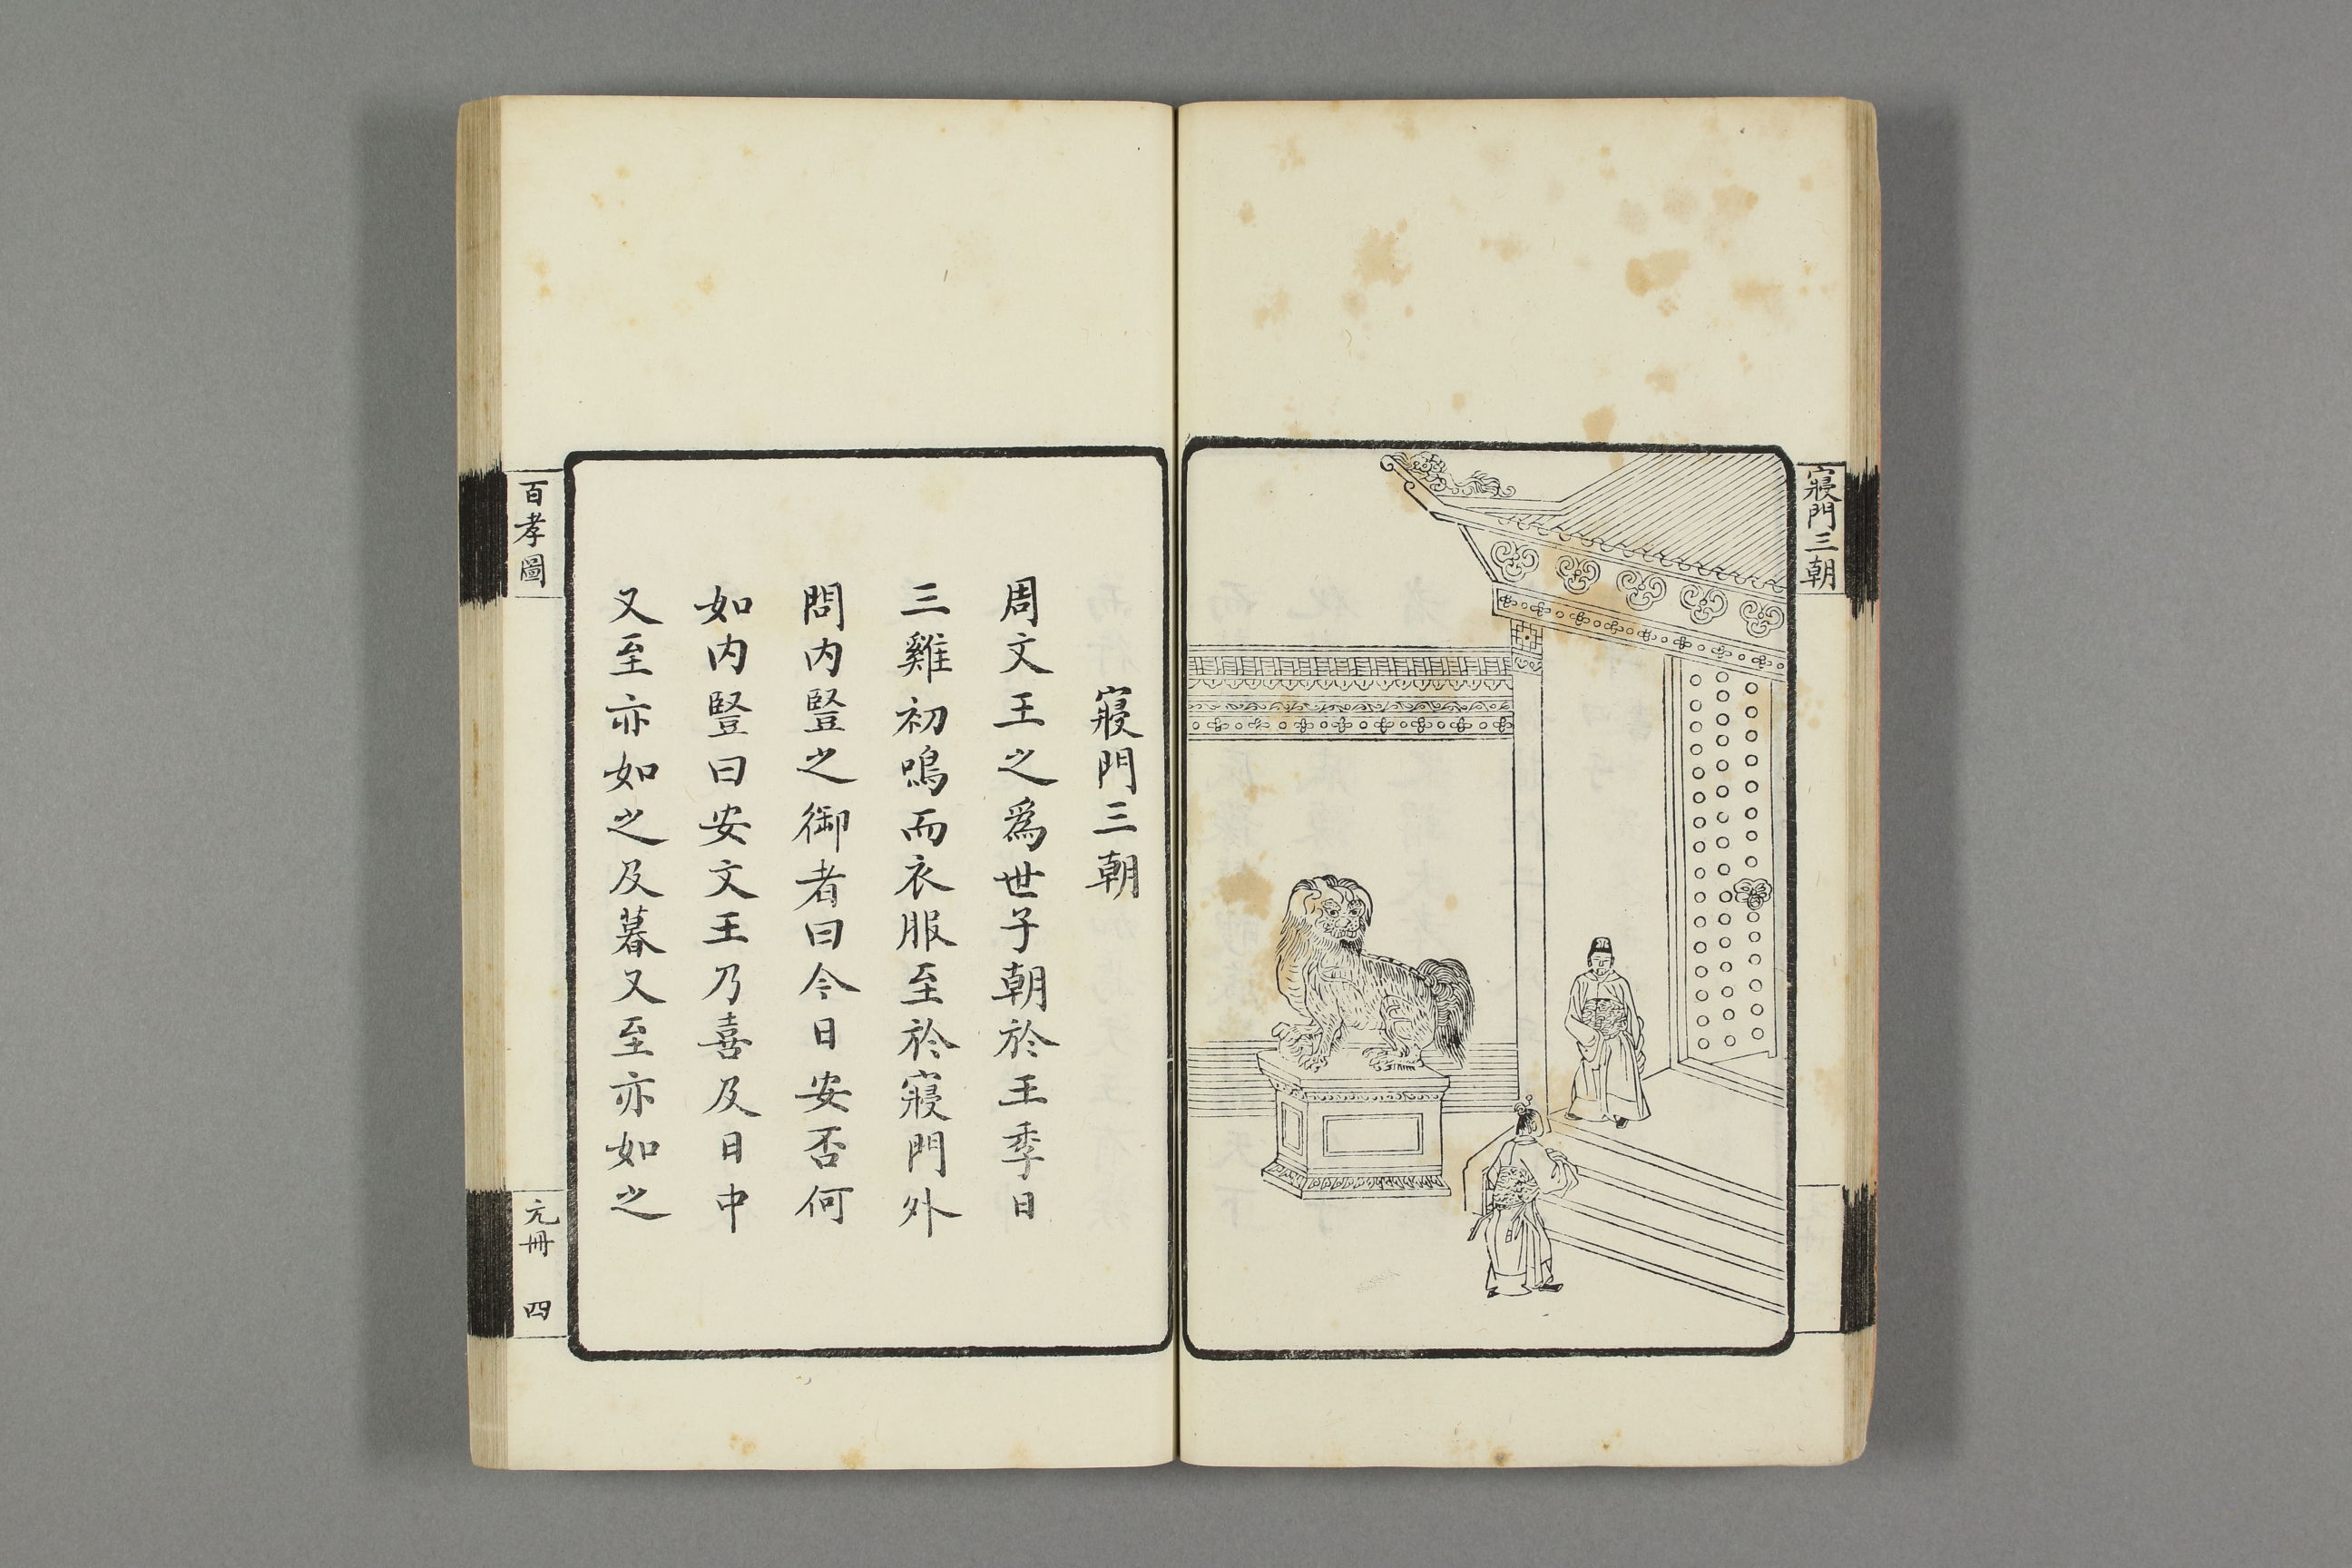 寢門三朝
寢門三朝
周文王之為世子朝於王季日
三雞初鳴而衣服至於寢門外
問内豎之御者曰今日安否何
如内豎曰安文王乃喜及日中
又至亦如之及暮又至亦如之
百孝圖
元冊
四